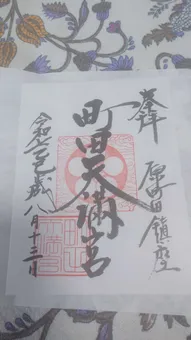 奉拝 原町田鎮座
町田天満宮
令和七乙巳歳八月十三日